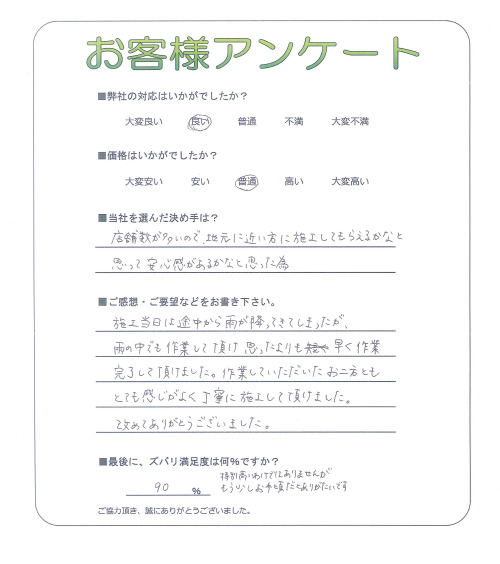 お客様アンケート
■弊社の対応はいかがでしたか？
大変良い 良い 普通 不満 大変不満
■価格はいかがでしたか？
大変安い 安い 普通 高い 大変高い
■当社を選んだ決め手は？
店舗数が多いので、地元に近い方に施工してもらえるかなと
思って安心感があるかなと思った為
■ご感想・ご要望などをお書き下さい。
施工当日は途中から雨が降ってきてしまったが、
雨の中でも作業して頂け思ったよりも早く作業
完了して頂けました。作業していただいたお二方とも
とても感じがよく丁寧に施工して頂けました。
改めてありがとうございました。
■最後に、ズバリ満足度は何%ですか？
90 %
特別高いわけではありませんが
もう少しお手頃だとありがたいです
ご協力頂き、誠にありがとうございました。